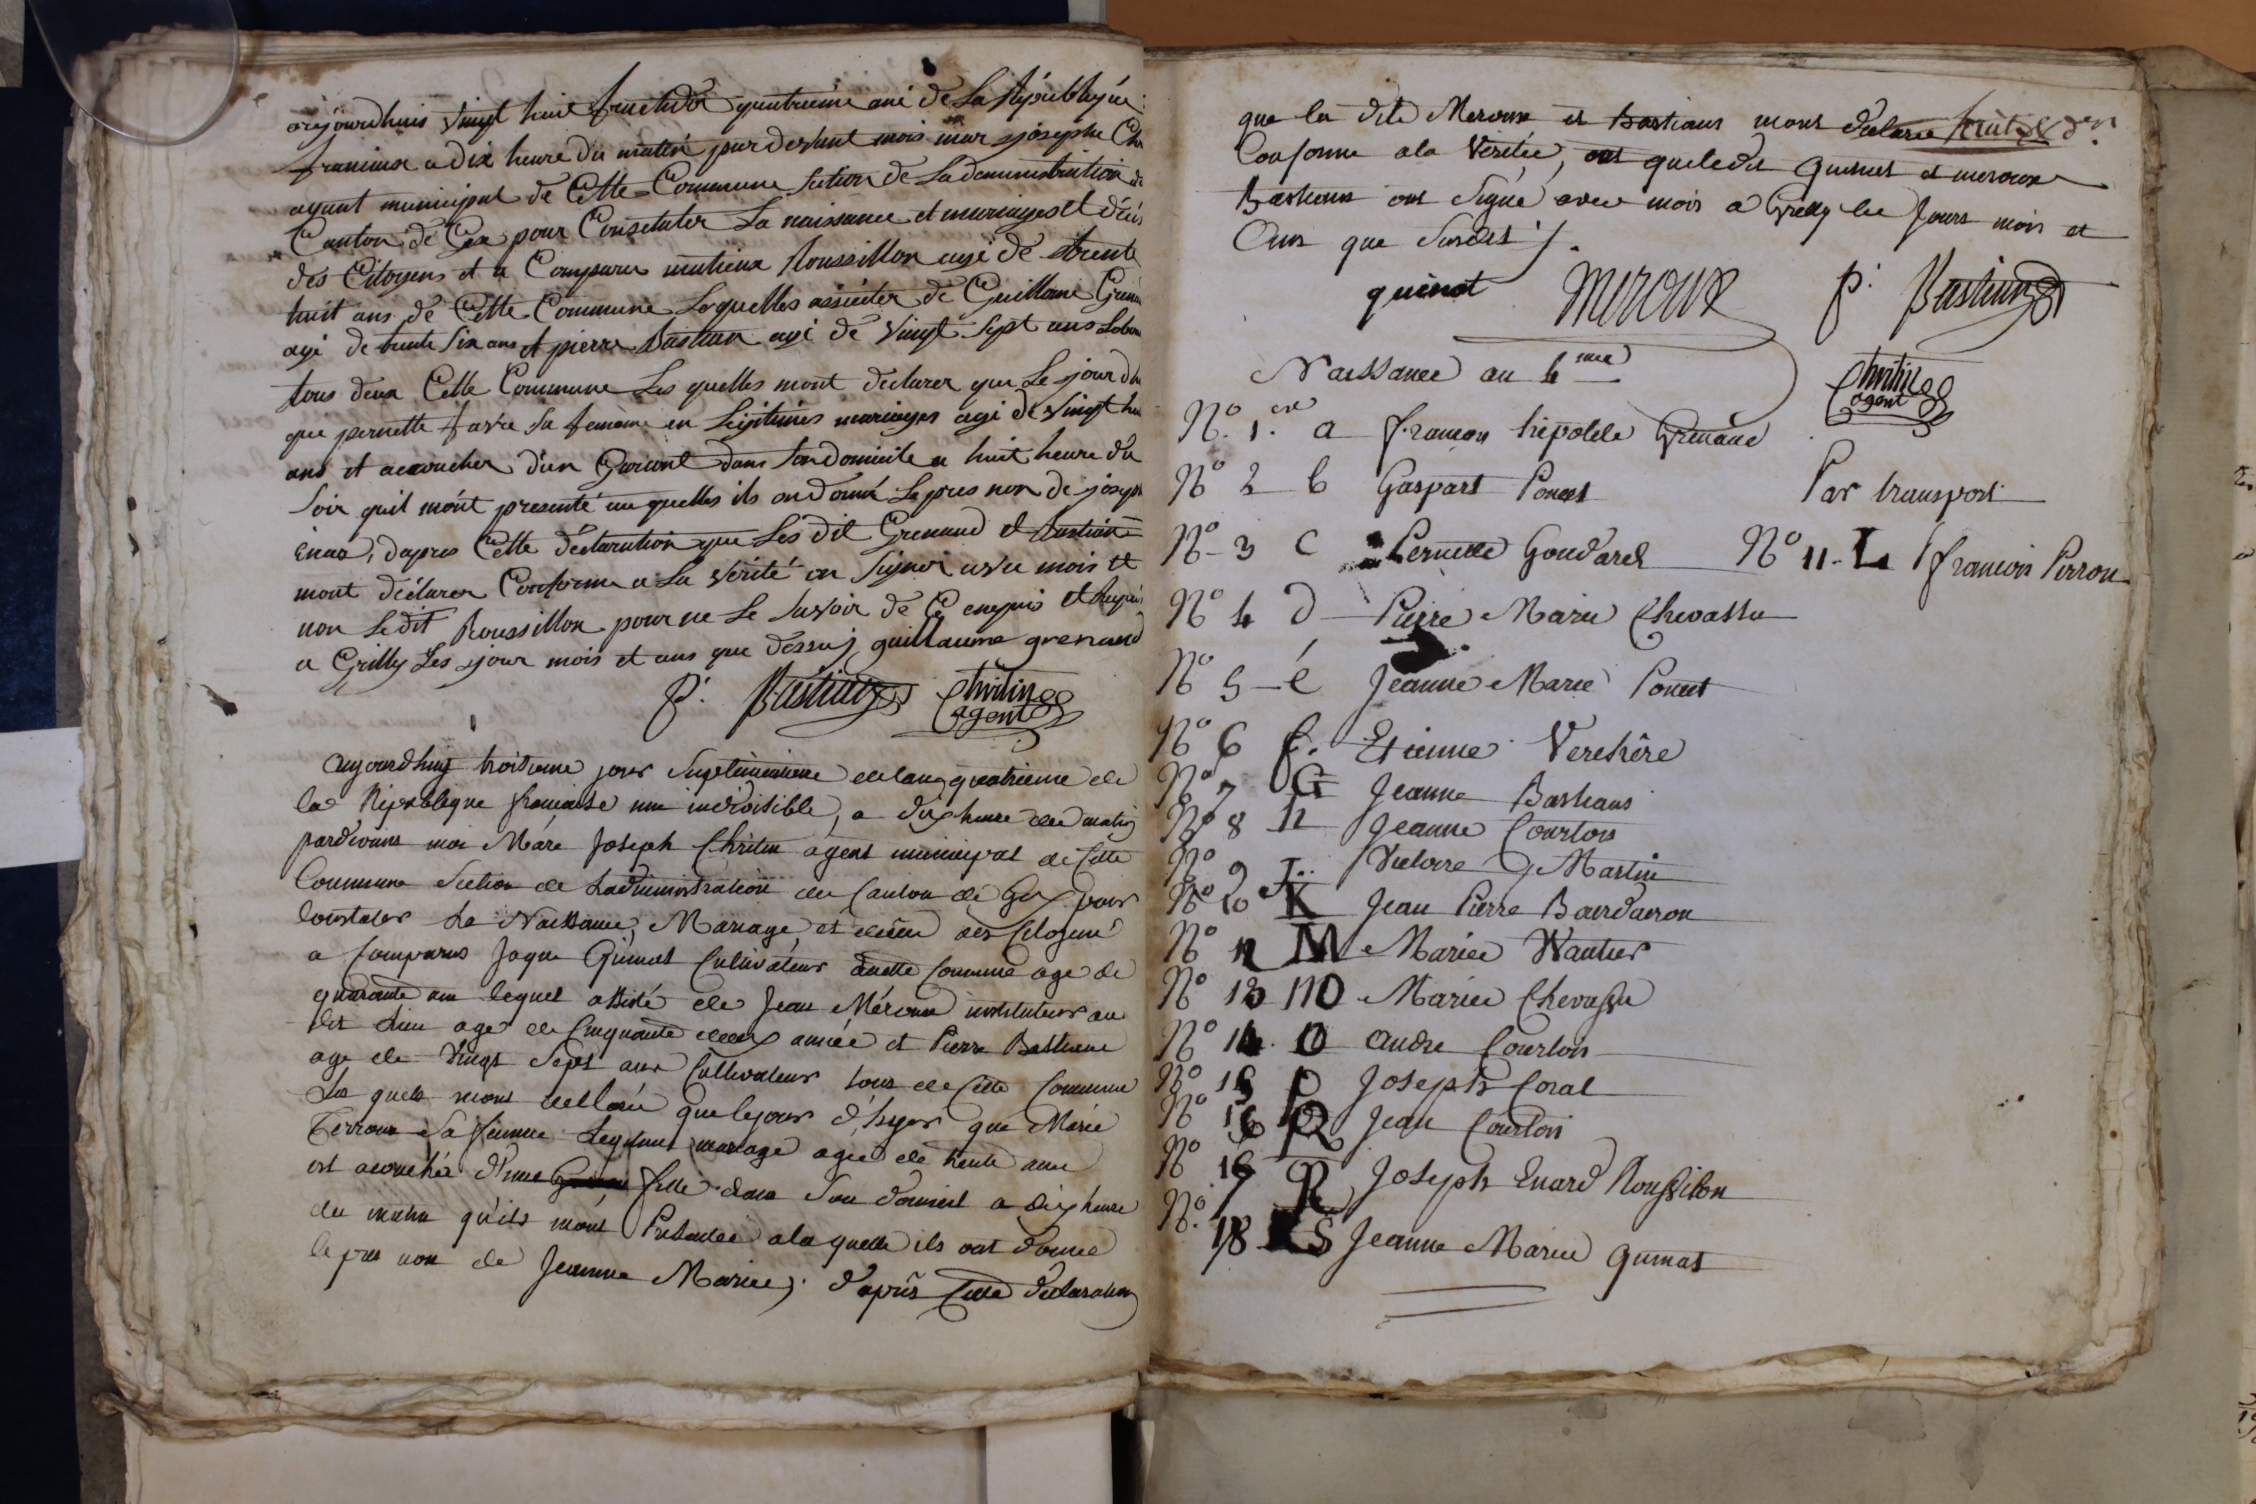 aujourdhuis vingt huit fructidor quatrieme ané de La Republique
francaise a dix heure du matin pardevant mois marc josephe Ch
agant municipal de Cette Commune Section de Ladeministration de
Canton de Gex pour Constater La naissance et mariages et décés
des Citoyens et a Comparu matieux Roussillon agé de trente
huit ans de Cette Commune Loquelles assister de Guillame Grena
agé de trente Six ans et pierre Bastian agé de vingt Sept ans Labou
tous deux Cette Commune Les quelles mont declarer que Le jour dh
que pernette favre Sa femme en Legitimes mariages agé de vingt hu
ans et accoucher d'un Garcont dans Son domicile a huit heure du
Soir quil mont presenté au quelles ils on donné Le pres non de joseph
Enar, dapres Cette declaration que Les dit Grenaud et Bastian
mont déclarer Conforme a La vérité on Signer avec mois et
non Le dit Roussillon pour ne Le Savoir de Ce enquis et Requis
a Grilly Les jour mois et ans que dessus guillaume grenaud
p. Bastian Christin
agent
aujourdhuy troisieme jour Suplementaire de lan quatrieme de
la République française une indivisible, a dix heure du matin
pardevans moi Marc Joseph Christin agent municipal de Cette
Commune Section de Ladministration du Canton de Gex pour
Constater La Naissance, Mariage, et décée des Citoyens
a Comparus Jaque Quinat Cultivateur de cette Commune age de
quarante ans lequel assisté de Jean Méroux instituteur au
dit Lieu age de Cinquante deux année et Pierre Bastians
age de Vingt Sept ans Cultivateur tous de Cette Commune
Les quels mont declaré que le jour d'hyer que Marie
Terroux Sa femme Legitime mariage agée de trente ans
est acouchée d'une fille dans Son domicil a dix heure
du matin qu'ils mont Présentée a la quelle ils ont donné
le pres non de Jeanne Mariee; d'après Cette déclaration
que les dits Meroux et Bastians mont déclarée
Conforme a la Véritée, ont que le dit Quinat et meroux
Bastians ont Signé avec moi a Grilly les Jours mois et
Ans que Susdits /.
quinat Meroux p. Bastian
Naissance au 4me
Christin
agent
No. 1.er a francois hipolite Grenaud
No 2 b Gaspart Poncet
Par transport
No 3 C Pernette Goudard
No 11. L francois Perron
No 4 d Pierre Marie Chevassu
No 5 é Jeanne Marie Poncet
No 6 f. Etienne Verchère
No 7 G Jeanne Bastians
No 8 h Jeanne Courtois
No 9 J.. Victoire Martin
No 10 K Jean Pierre Baudairon
No 12 M Mariee Wautier
No 13 Mariee Chevassu
No 14. O andre Courtois
No 15 P Joseph Coral
No 16 Jean Courtois
No 17 R Joseph Enard Roussillon
No. 18 S Jeanne Mariee Quinat